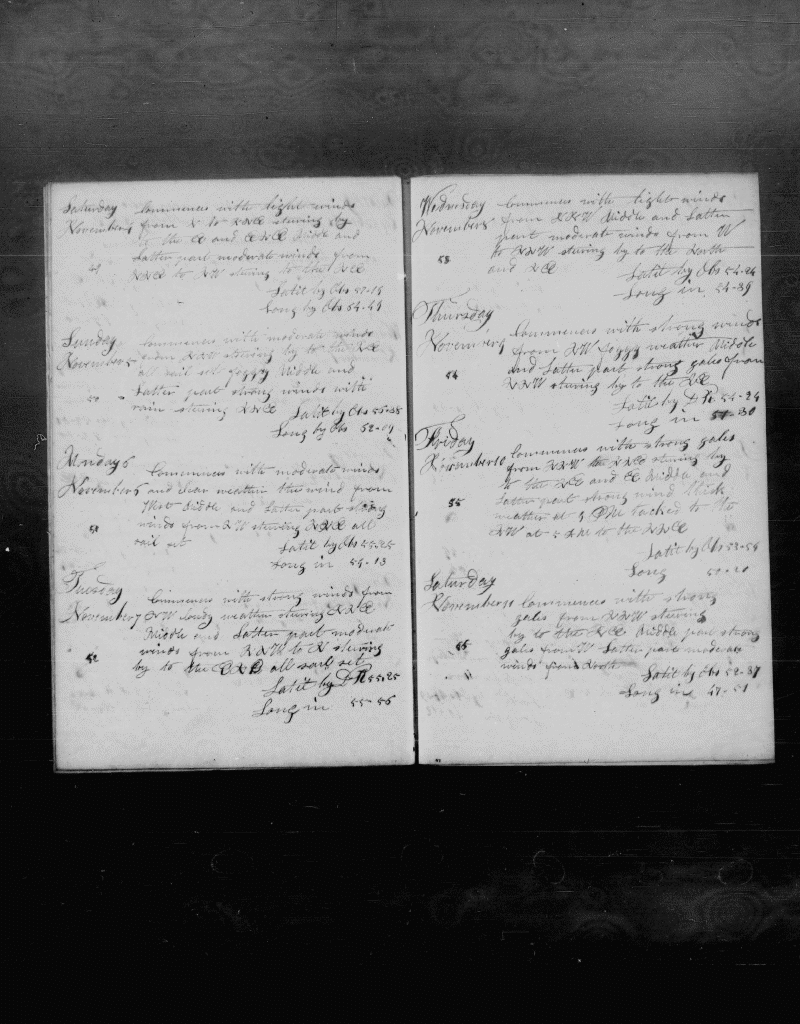 Saturday Commences with light winds
November 4 from N to NNE stering by
to the E and ENE Middle and
Latter part moderate winds from
NNE to NW stering to the NE
Latit by Obs
Long by Obs 54-49
Sunday Commences with moderate winds
November 5 from NNW stering by to the NE
all sail set foggy Middle and
Latter part strong winds with
rain stering NNE Latit by Obs 55-38
Long by Obs 52-09
Monday 6 Commences with moderate winds
November 6 and clear weather the wind from
Middle and Latter part strong
51 winds from NW stering NNE all
sail set Latit by Obs 55-25
Long in 54-13
Tuesday Commences with strong winds from
November 7 NW Cloudy weather stering NNE
Middle and Latter part moderate
52 winds from NNW to N stering
by to the all sail set
Latit by DR 55-25
Long in 55-56
Wednesday Commences with light winds
November 8 from NNW Middle and Latter
part moderate winds from W
53 to NNW stering by to the North
and NE Latit by Obs 54-24
Long in 54-39
Thursday
November 9 Commences with strong winds
from NW foggy weather Middle
54 and Latter part strong gales from
NNW stering by to the NE
Latit by DR 54-24
Long in 51-30
Friday
November 10 Commences with strong gales
from NNW the NNE stering by
to the NE and E Middle and
55 Latter part strong wind thick
weather at 4 PM tacked to the
NW at AM to the NNE
Latit by Obs 53-54
Long
Saturday
November 11 Commences with strong
gales from NNW stering
by to the NE Middle part strong
gales from W Latter part moderate
winds from North
Latit by Obs 52-37
Long in 47-51